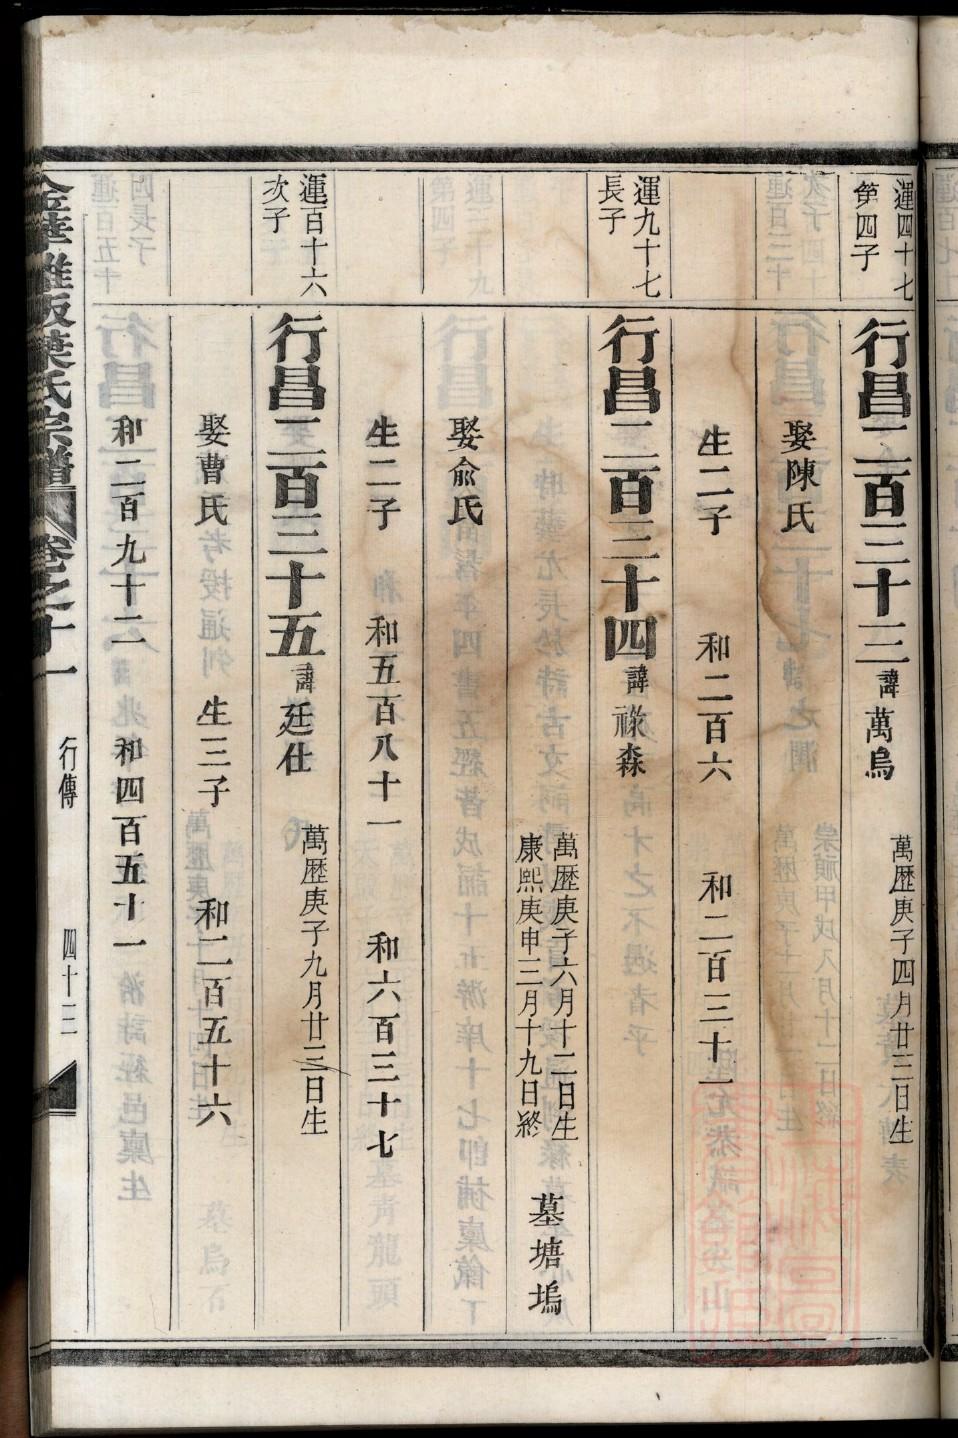 運四十七
第四子
行昌二百三十三 諱萬烏
萬歷庚子四月廿三日生
娶陳氏
生二子 和二百六 和二百三十一
運九十七
長子
行昌二百三十四 諱祿森
萬歷庚子六月十二日生
康熙庚申三月十九日終
墓塘塢
娶俞氏
生二子 和五百八十一 和六百三十七
運百十六
次子
行昌二百三十五 諱廷仕
萬歷庚子九月廿三日生
娶曹氏 生三子 和二百五十六
和二百九十二 和四百五十一
葉氏宗譜 卷之十一 行傳 四十三